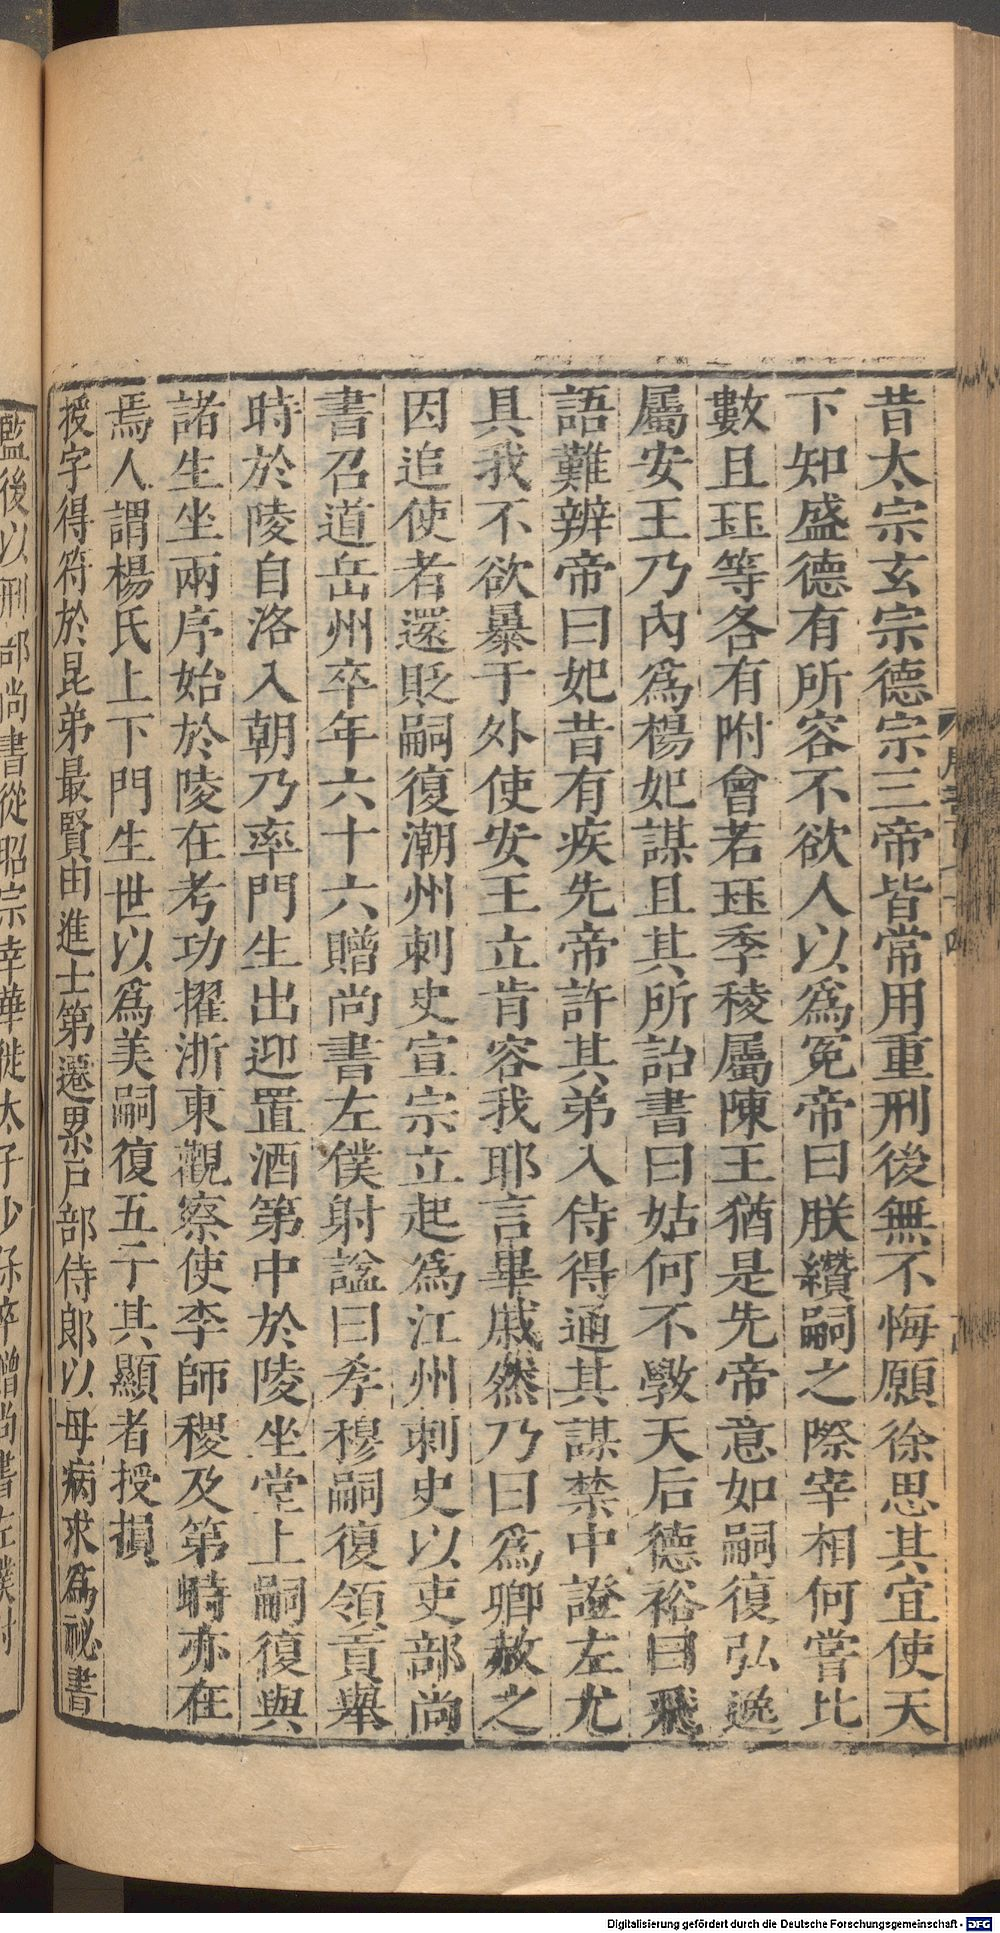 昔太宗玄宗德宗三帝皆常用重刑後無不悔願徐思其宜使天
下知盛德有所容不欲人以爲冤帝曰朕纘嗣之際宰相何嘗比
數且珏等各有附會若珏季稜屬陳王猶是先帝意如嗣復弘逸
屬安王乃內爲楊妃謀且其所詒書曰姑何不斆天后德裕曰飛
語難辨帝曰妃昔有疾先帝許其弟入侍得通其謀禁中證左尤
具我不欲暴于外使安王立肯容我耶言畢戚然乃曰爲卿赦之
因追使者還貶嗣復潮州刺史宣宗立起爲江州刺史以吏部尚
書召道岳州卒年六十六贈尚書左僕射諡曰孝穆嗣復領貢舉
時於陵自洛入朝乃率門生出迎置酒第中於陵坐堂上嗣復與
諸生坐兩序始於陵在考功擢浙東觀察使李師稷及第時亦在
焉人謂楊氏上下門生世以爲美嗣復五子其顯者授損
授字得符於昆弟最賢由進士第遷累戶部侍郎以母病求爲祕書
監後以刑部尚書從昭宗幸華徙太子少保卒贈尚書左僕射
Digitalisierung gefördert durch die Deutsche Forschungsgemeinschaft - DFG